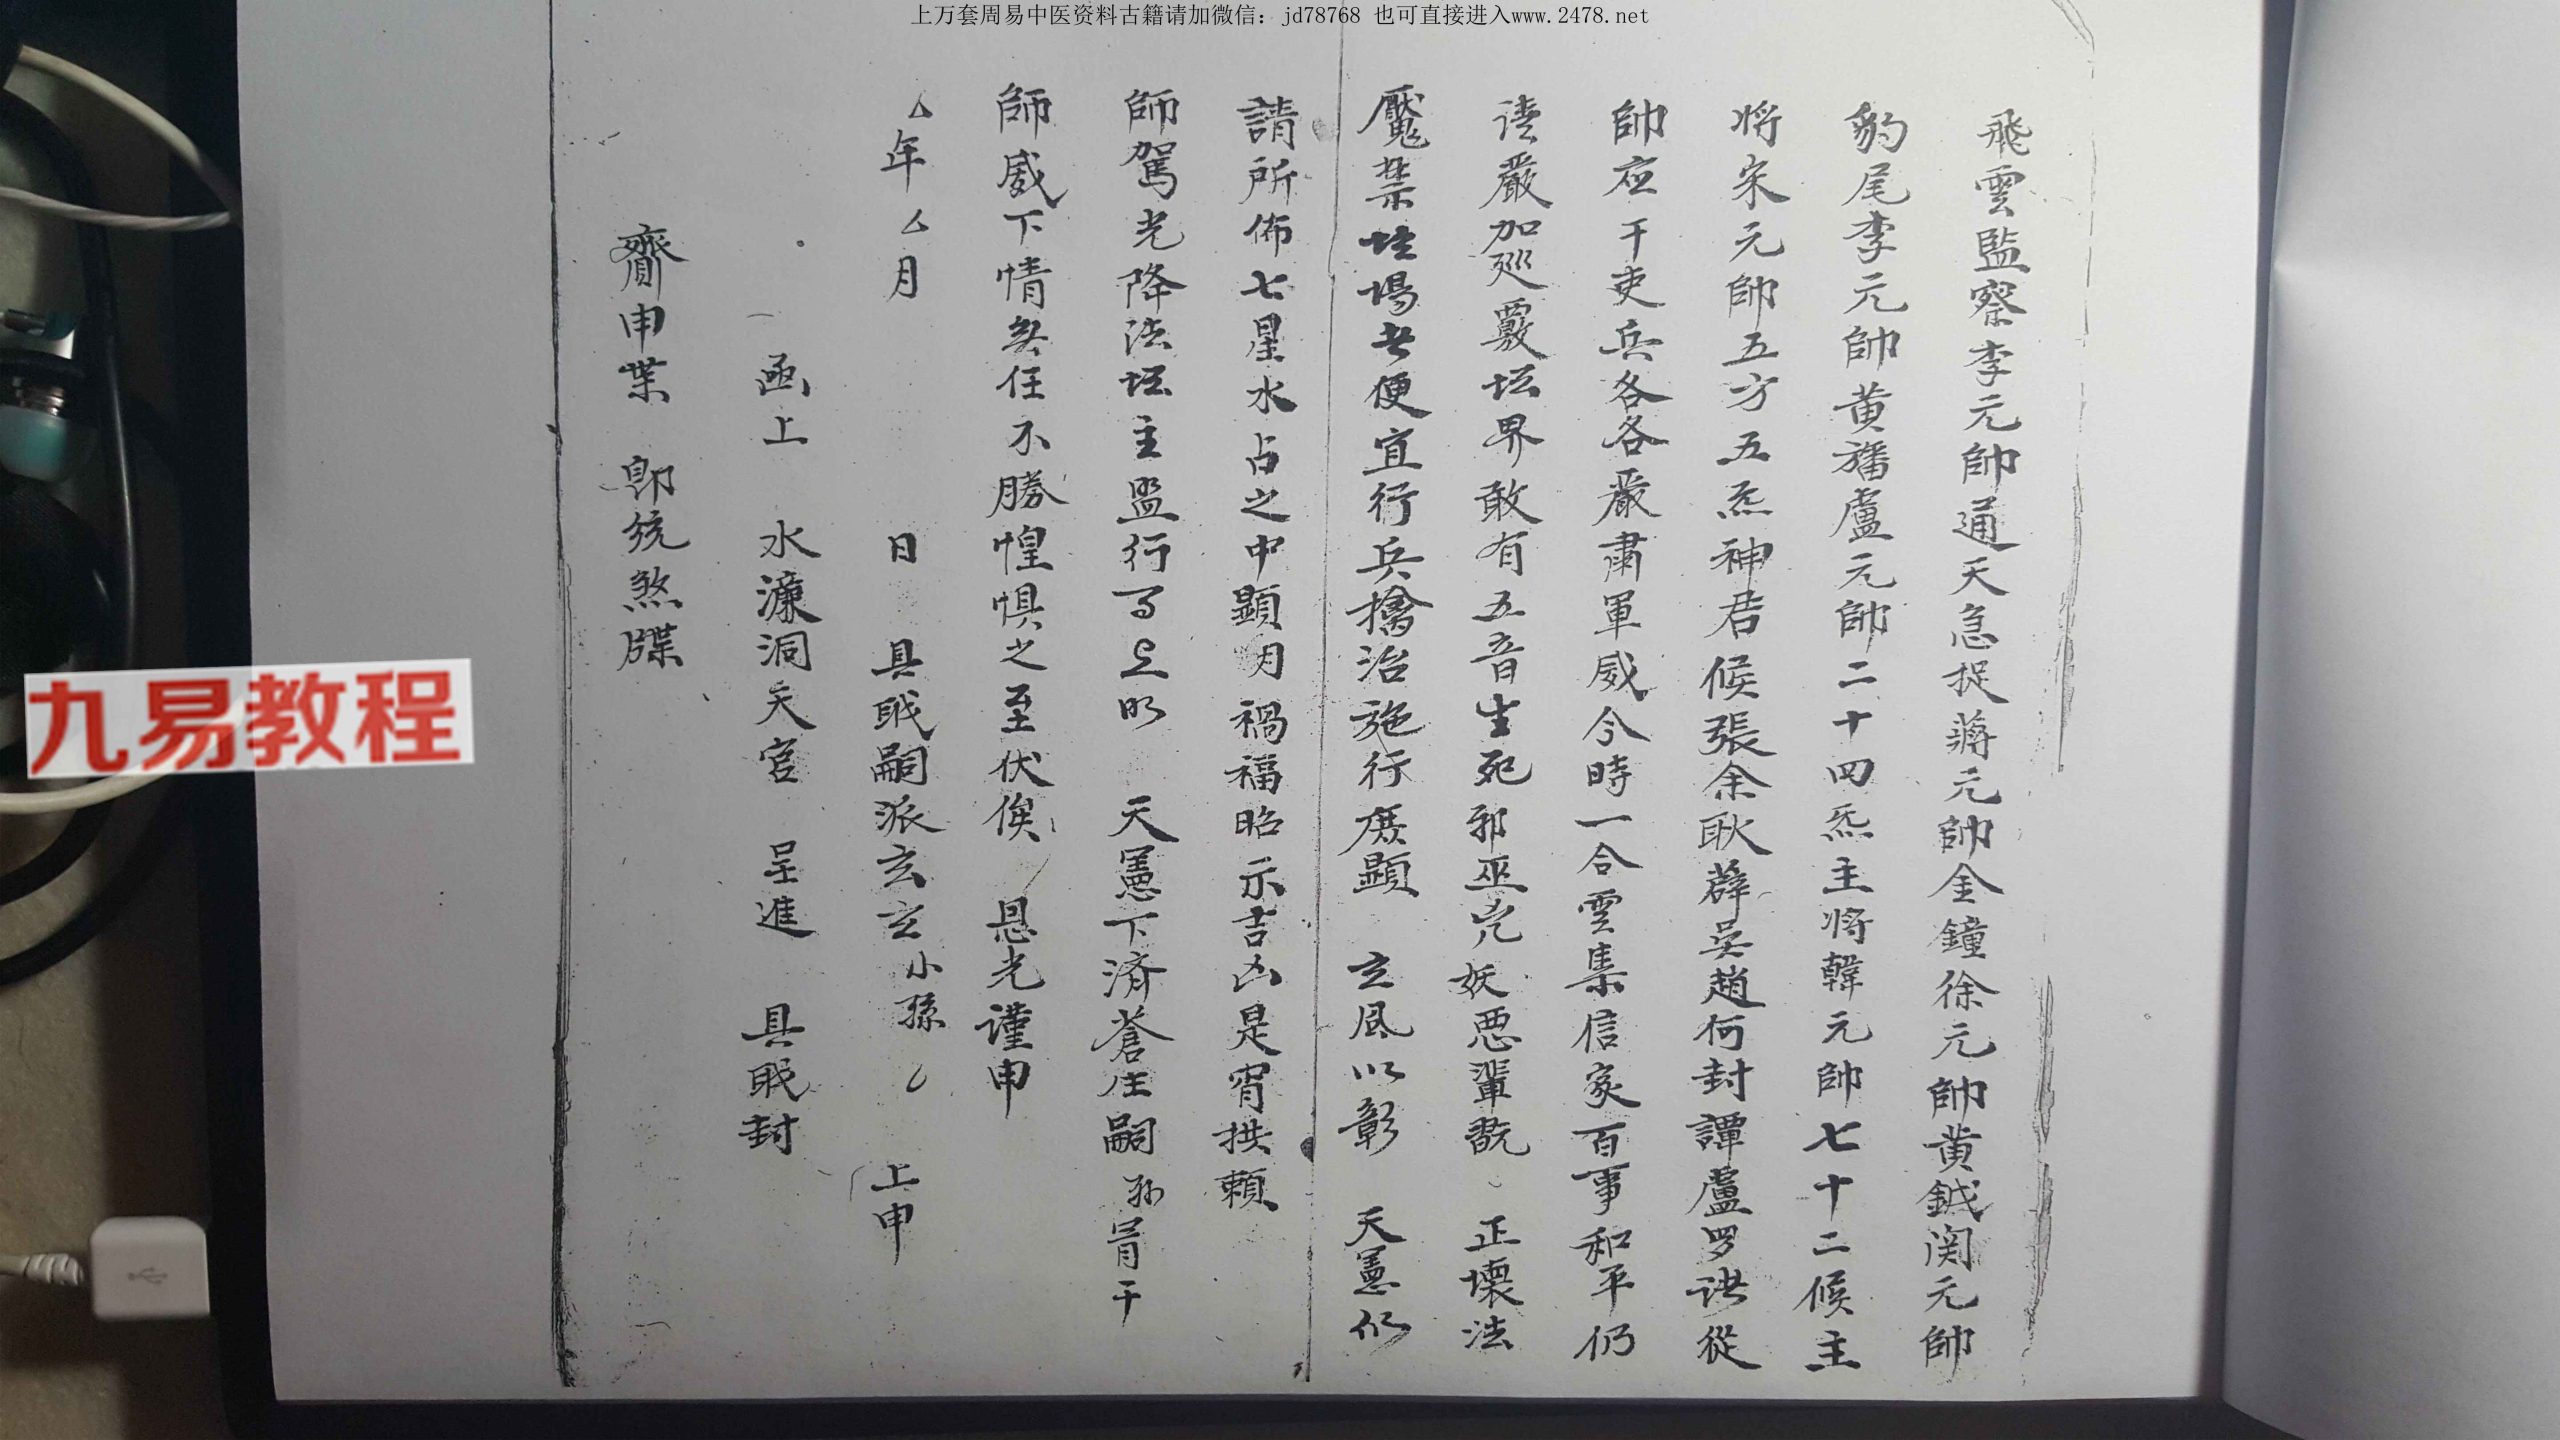 上万套周易中医资料古籍请加微信：jd78768 也可直接进入www.2478.net
飛雲監察李元帥通天急捉蔣元帥金鐘徐元帥黄鉞関元帥
豹尾李元帥黄旛盧元帥二十四炁主将韓元帥七十二候主
将宋元帥五方五炁神君候張余耿薛吴趙何封譚盧罗洪從
帥应干吏兵各各嚴肃軍威今時一合雲集信家百事和平仍
嚴加廵覈坛界敢有五音生死邪巫妖惡輩翫 正壞法
魘禁坛場者便宜行兵擒治施行廣顕 玄風以彰 天憲仍
請所佈七星水占之中顕明禍福昭示吉凶是宵拱頼
師駕光降法坛主盟行 天憲下済蒼生嗣孙冐干
師威下情無任不勝惶惧之至伏俟 恩光谨申
年 月 日 具职嗣派玄玄小孫 上申
函上 水濂洞天宫 呈進 具职封
齎申業 即統煞牒
九易教程